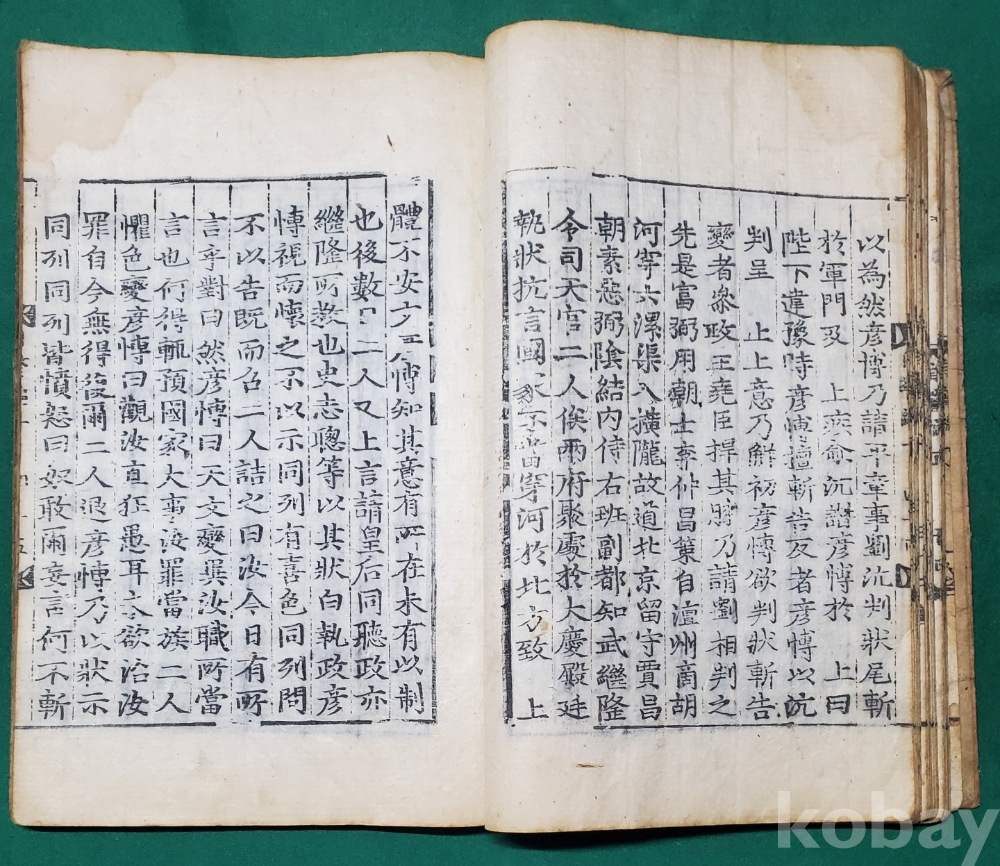 以為然彦博乃請平章事劉沆判狀尾斬
於軍門及 上疾愈沆譖彦博於 上曰
陛下違豫時彦博擅斬告反者彦博以沆
判呈 上上意乃解初彦博欲判狀斬告
變者叅政王堯臣捍其膝乃請劉相判之
先是富弼用朝士李仲昌策自澶州商胡
河穿六漯渠入橫隴故道北京留守賈昌
朝素惡弼陰結內侍右班副都知武繼隆
令司天官二人俟兩府聚處於大慶殿廷
執狀抗言國家不當穿河於北方致 上
體不安博知其意有所在未有以制
也後數二人又上言請皇后同聽政亦
繼隆所教也史志聰等以其狀白執政彦
博視而懷之不以示同列有喜色同列問
不以告既而召二人詰之曰汝今日有所
言乎對曰然彦博曰天文變異汝職所當
言也何得輒預國家大事汝罪當族二人
懼色變彦博曰觀汝直狂愚耳今欲治汝
罪自今無得復爾二人退彦博乃以狀示
同列同列皆憤怒曰奴敢爾妄言何不斬
kobay